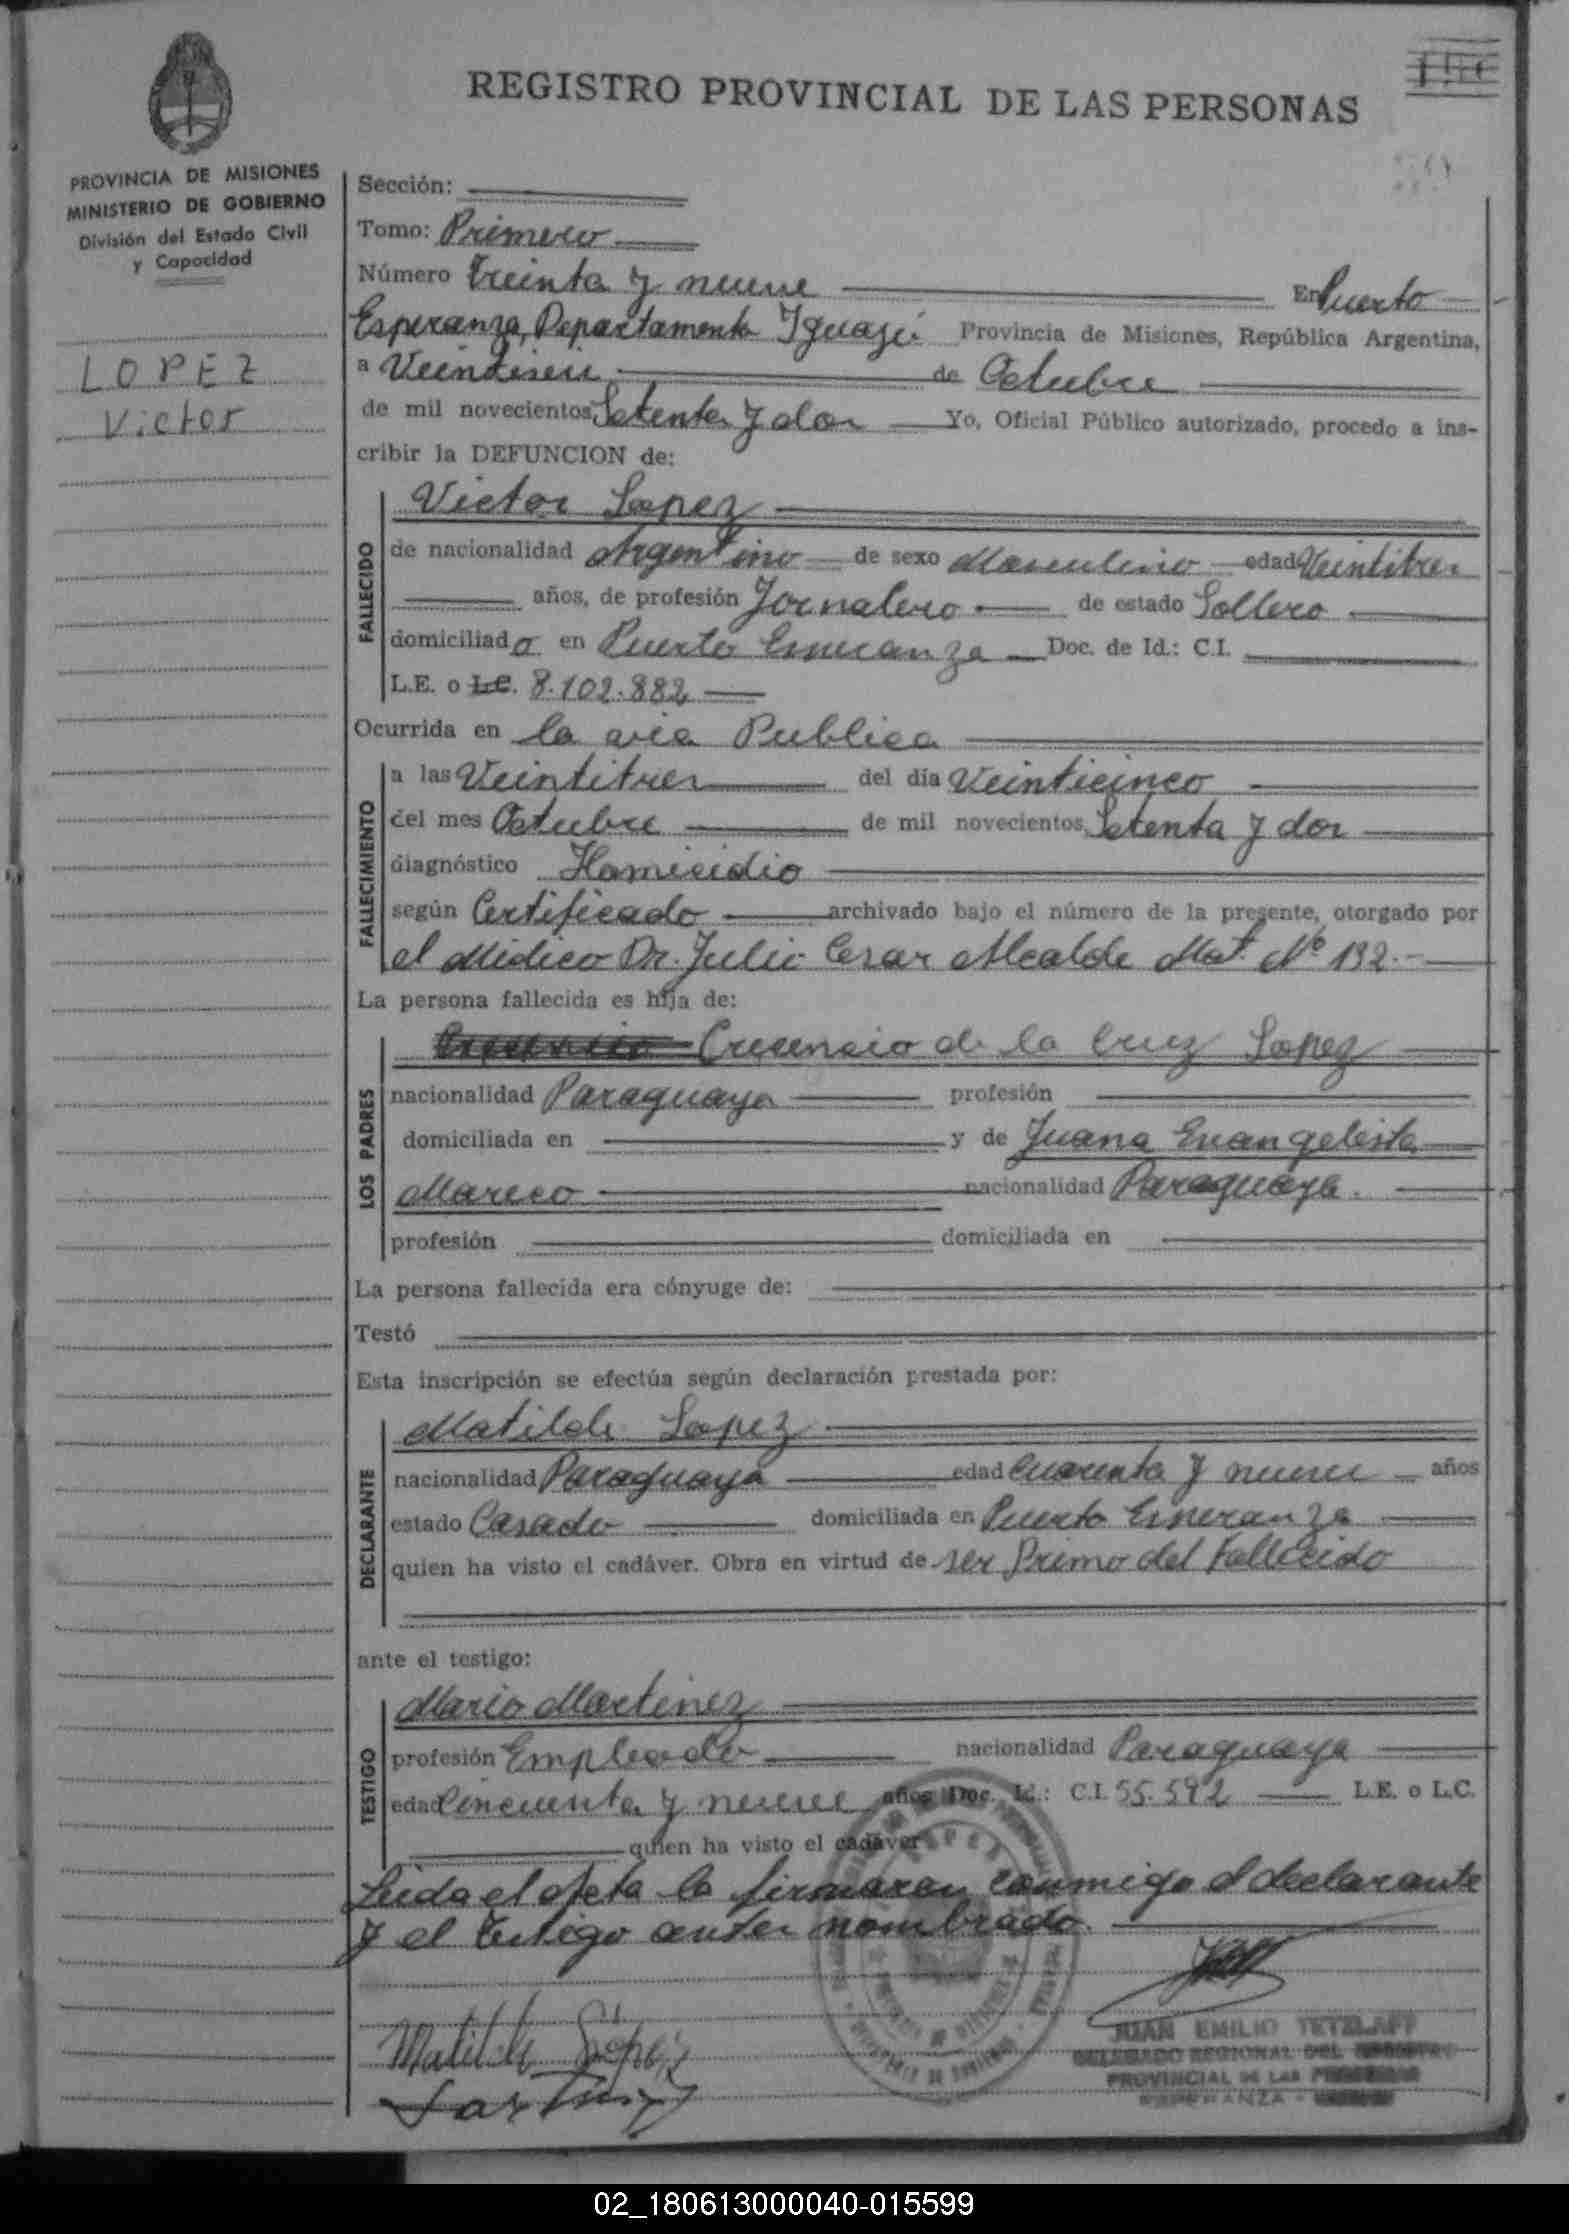 REGISTRO PROVINCIAL DE LAS PERSONAS
PROVINCIA DE MISIONES
MINISTERIO DE GOBIERNO
División del Estado Civil
y Capacidad
LOPEZ
Victor
Sección:
Tomo: Primero
Número Treinta y nueve En Puerto
Esperanza, Departamento Iguazú Provincia de Misiones, República Argentina,
a Veintiseis de Octubre
de mil novecientos Setenta y dos Yo, Oficial Público autorizado, procedo a ins-
cribir la DEFUNCION de:
FALLECIDO
Victor Lopez
de nacionalidad Argentino de sexo Masculino edad Veintitres
años, de profesión Jornalero de estado Soltero
domiciliado en Puerto Esperanza Doc. de Id.: C.I.
L.E. o L.C. 8.102.882
Ocurrida en la via Publica
FALLECIMIENTO
a las Veintitres del día Veinticinco
del mes Octubre de mil novecientos Setenta y dos
diagnóstico Homicidio
según Certificado archivado bajo el número de la presente, otorgado por
el Médico Dr. Julio Cesar Alcalde Mat. Nº 132.-
La persona fallecida es hija de:
LOS PADRES
Crecencio de la Cruz Lopez
nacionalidad Paraguaya profesión
domiciliada en y de Juana Evangelista
Mareco nacionalidad Paraguaya.
profesión domiciliada en
La persona fallecida era cónyuge de:
Testó
Esta inscripción se efectúa según declaración prestada por:
DECLARANTE
Matilde Lopez
nacionalidad Paraguaya edad Cuarenta y nueve años
estado Casado domiciliada en Puerto Esperanza
quien ha visto el cadáver. Obra en virtud de ser Primo del Fallecido
ante el testigo:
TESTIGO
Mario Martinez
profesión Empleado nacionalidad Paraguaya
edad Cincuenta y nueve años Doc. Id.: C.I. 55.592 L.E. o L.C.
quien ha visto el cadáver
Leida el acta la firmaron conmigo el declarante
y el Testigo antes nombrado.
Matilde López
JUAN EMILIO TETZLAFF
DELEGADO REGIONAL DEL REGISTRO
PROVINCIAL DE LAS PERSONAS
ESPERANZA -
02_180613000040-015599